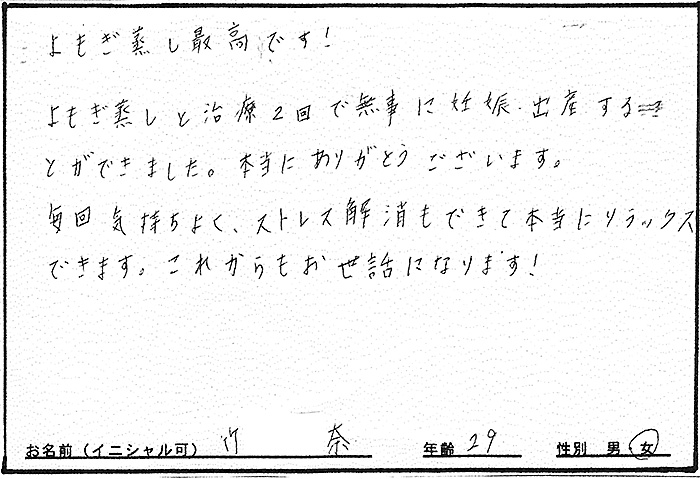 よもぎ蒸し最高です!
よもぎ蒸しと治療2回で無事に妊娠・出産するこ
とができました。本当にありがとうございます。
毎回気持ちよく、ストレス解消もできて本当にリラックス
できます。これからもお世話になります!
お名前(イニシャル可) 竹 奈 年齢 29 性別 男・女